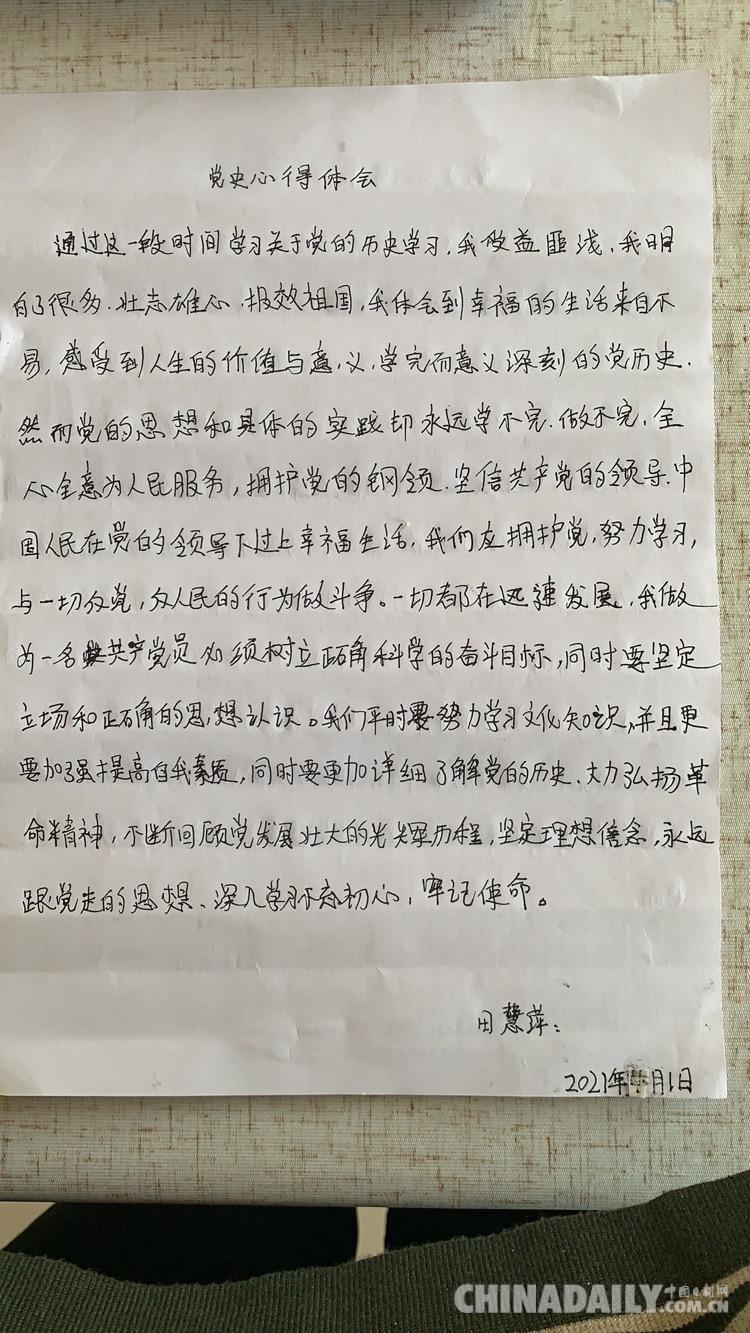 党史心得体会
通过这一段时间学习关于党的历史学习,我收益匪浅,我明
白了很多.壮志雄心.报效祖国,我体会到幸福的生活来自不
易,感受到人生的价值与意义,学完而意义深刻的党历史.
然而党的思想和具体的实践却永远学不完.做不完.全
心全意为人民服务,拥护党的钢领.坚信共产党的领导.中
国人民在党的领导下过上幸福生活,我们应拥护党,努力学习,
与一切反党,反人民的行为做斗争。一切都在迅速发展,我做
为一名共产党员必须树立正确科学的奋斗目标,同时要坚定
立场和正确的思想认识。我们平时要努力学习文化知识,并且更
要加强提高自我素质,同时要更加详细了解党的历史、大力弘扬革
命精神,不断回顾党发展壮大的光辉历程,坚定理想信念,永远
跟党走的思想、深入学习不忘初心,牢记使命。
田慧萍:
2021年 月1日
CHINADAILY 中国日报网
.COM.CN